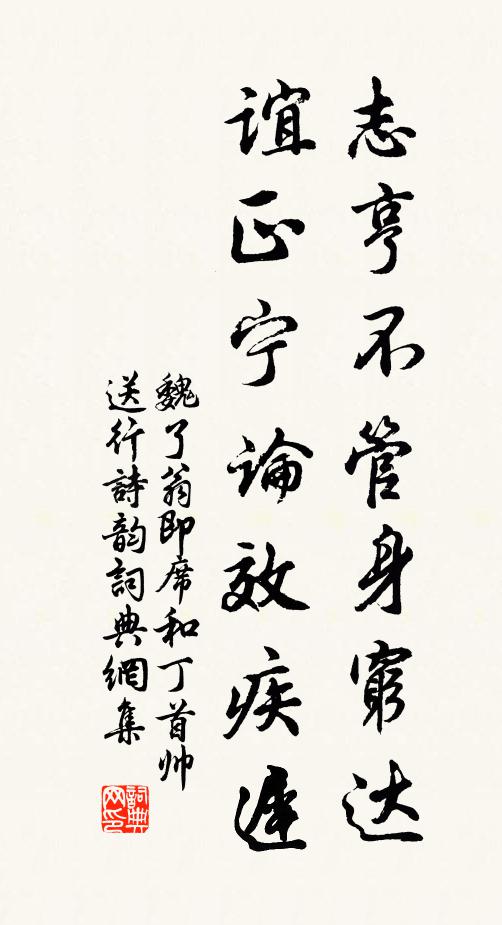 志亨不管身窮达
谊正宁論效疾遲
魏了翁即席和丁首帅
送行詩韵詞典網集
詞典网印